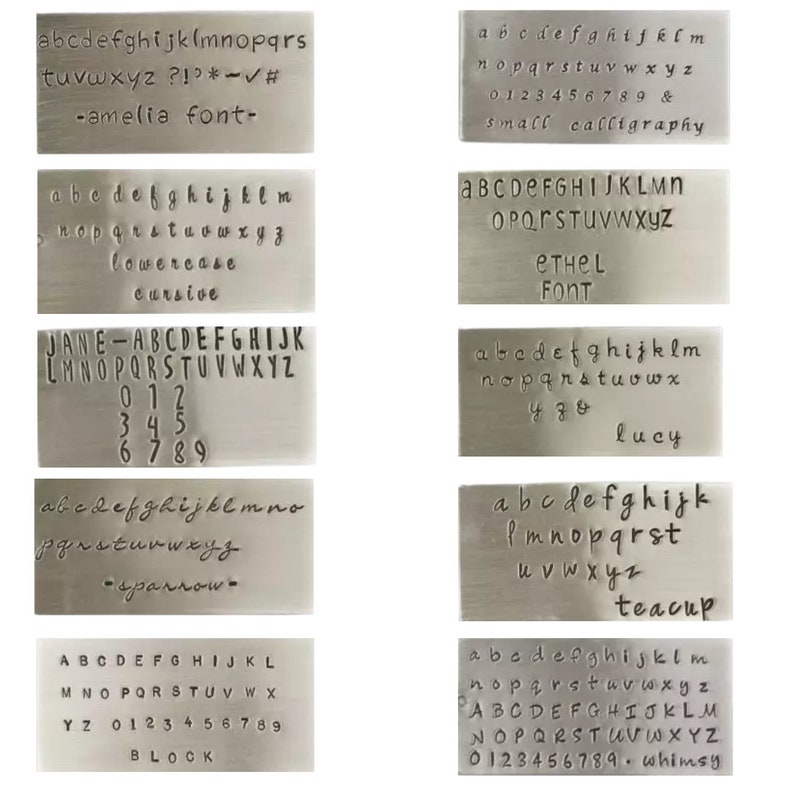 abcdefghijklmnopqrs
tuvwxyz ?!'*-✓#
-amelia font-
a b c d e f g h i j k l m
n o p q r s t u v w x y z
0 1 2 3 4 5 6 7 8 9 &
small calligraphy
a b c d e f g h i j k l m
n o p q r s t u v w x y z
lowercase
cursive
aBCDeFGHIJKLMn
OPQrSTUVWXyZ
eTHeL
FONT
JANE-ABCDEFGHIJK
LMNOPQRSTUVWXYZ
0 1 2
3 4 5
6 7 8 9
a b c d e f g h i j k l m
n o p q r s t u v w x
y z &
lucy
a b c d e f g h i j k l m n o
p q r s t u v w x y z
-sparrow-
a b c d e f g h i j k
l m n o p q r s t
u v w x y z
teacup
A B C D E F G H I J K L
M N O P Q R S T U V W X
Y Z 0 1 2 3 4 5 6 7 8 9
BLOCK
a b c d e f g h i j k l m
n o p q r s t u v w x y z
A B C D E F G H I J K L M
N O P Q R S T U V W X Y Z
0 1 2 3 4 5 6 7 8 9 . whimsy